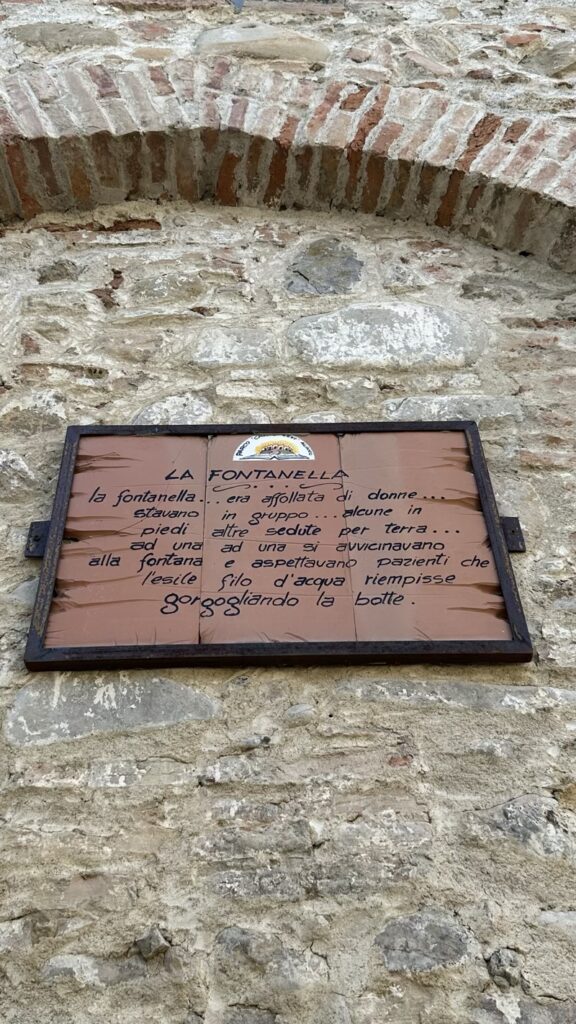 LA FONTANELLA
la fontanella... era affollata di donne....
stavano in gruppo... alcune in
piedi altre sedute per terra...
ad una ad una si avvicinavano
alla fontana e aspettavano pazienti che
l'esile filo d'acqua riempisse
gorgogliando la botte.